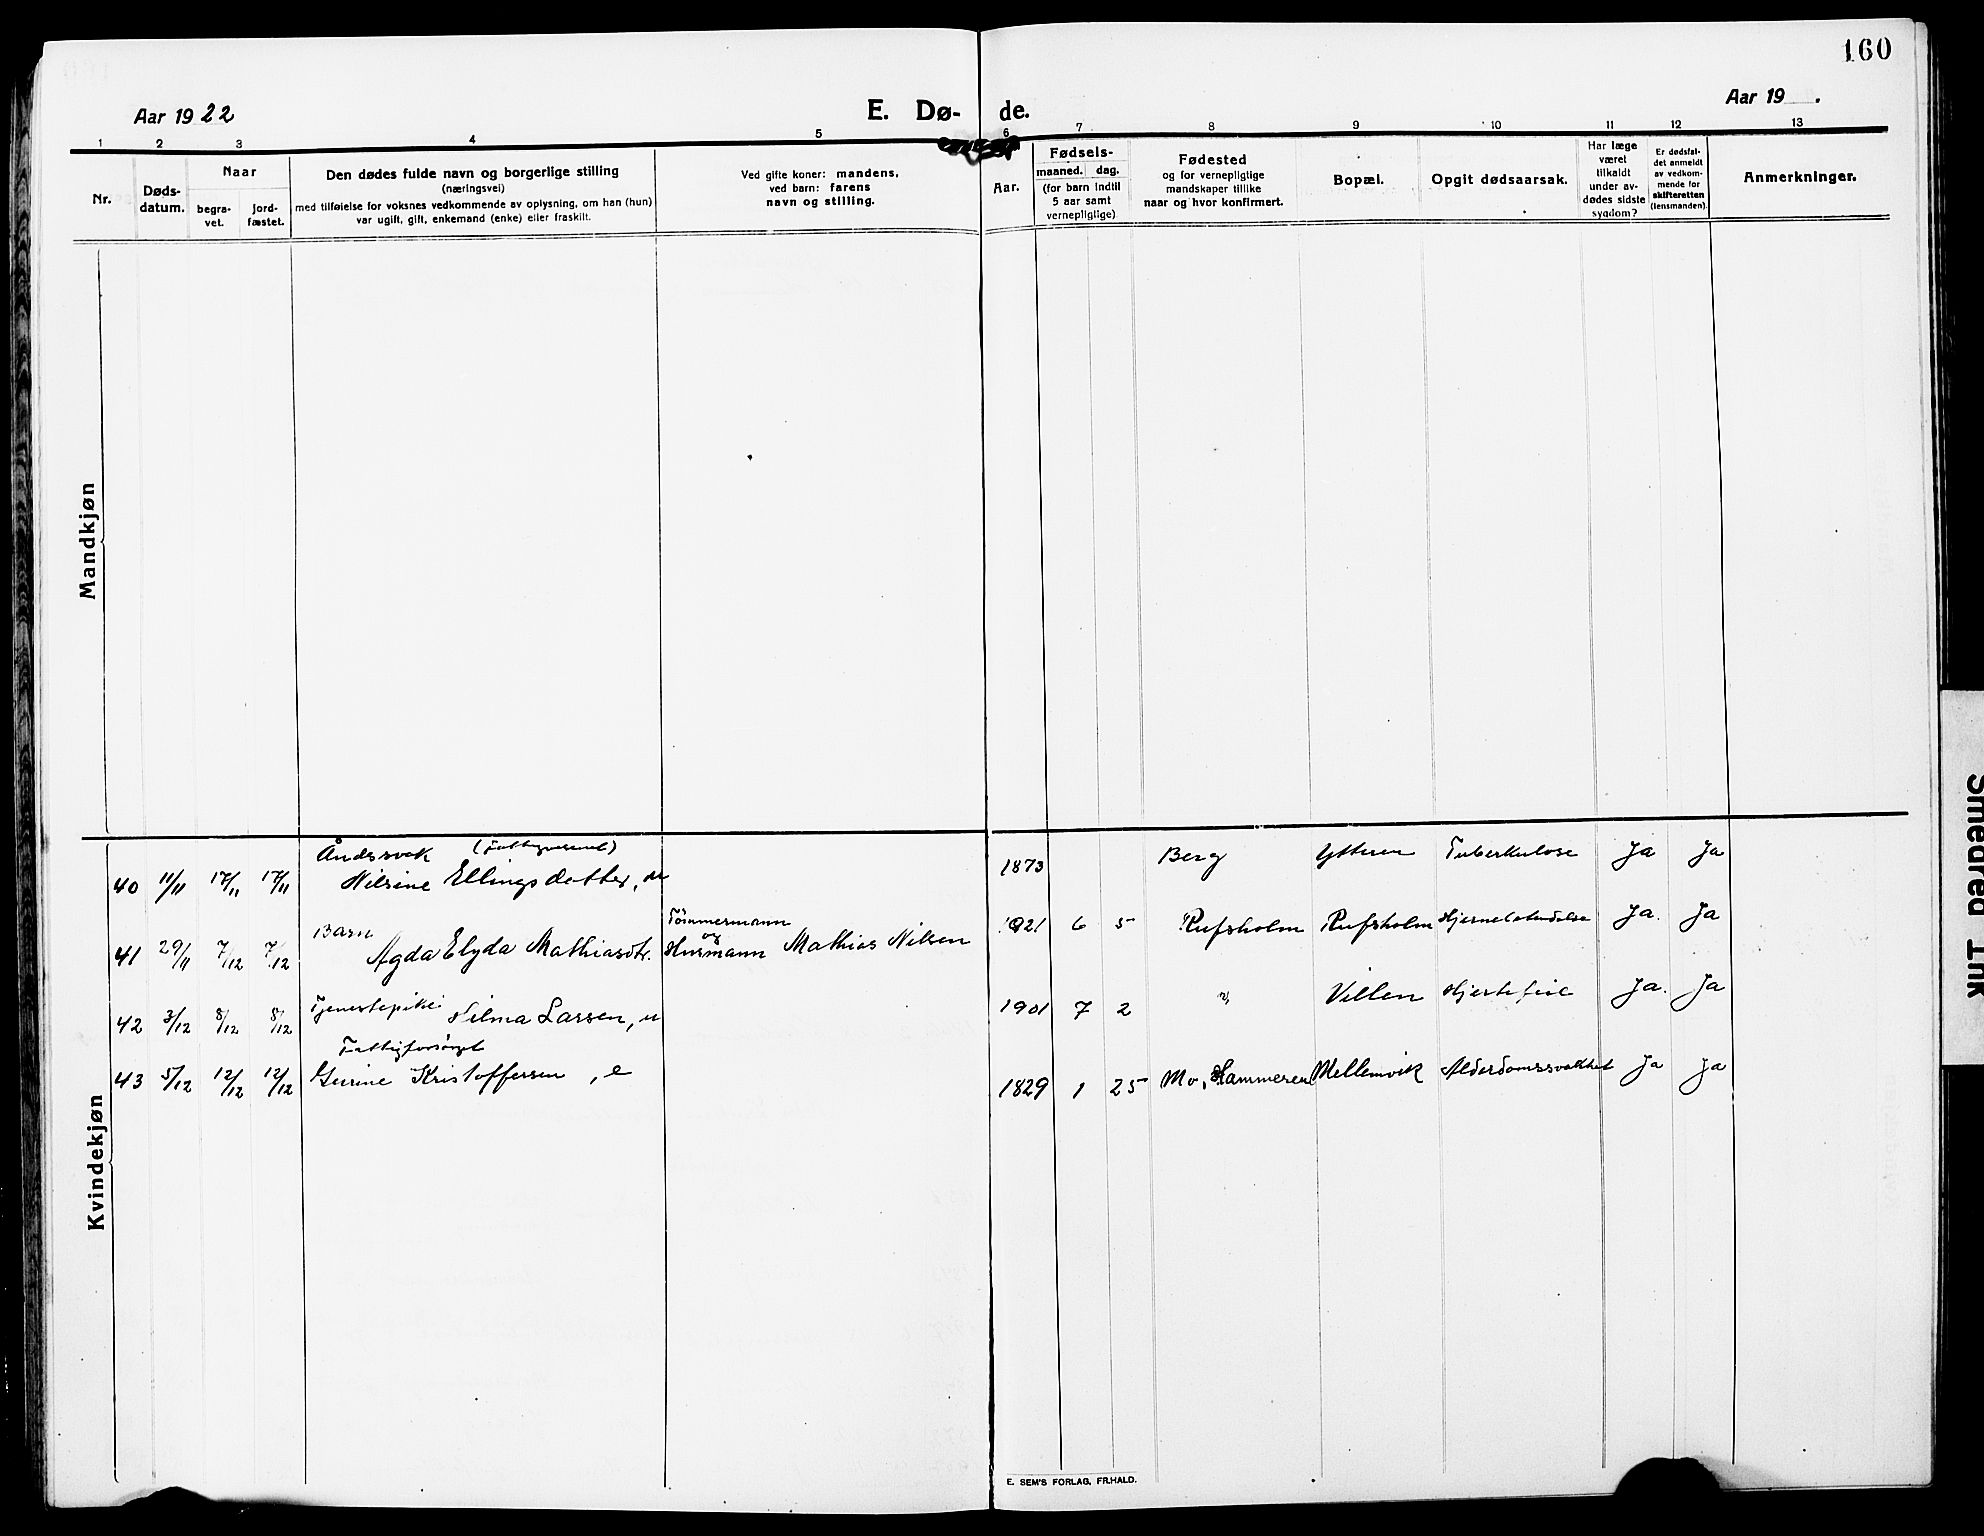 160
Aar 1922
E. Dø-
de.
Aar 19 .
1 2 3 4 5 6 7 8 9 10 11 12 13
Nr.
Døds-
datum.
Naar
begra-
vet.
jord-
fæstet.
Den dødes fulde navn og borgerlige stilling
(næringsvei)
med tilføielse for voksnes vedkommende av oplysning, om han (hun)
var ugift, gift, enkemand (enke) eller fraskilt.
Ved gifte koner: mandens,
ved barn: farens
navn og stilling.
Aar.
Fødsels-
maaned. dag.
(for barn indtil
5 aar samt
vernepligtige)
Fødested
og for vernepligtige
mandskaper tillike
naar og hvor konfirmert.
Bopæl.
Opgit dødsaarsak.
Har læge
været
tilkaldt
under av-
dødes sidste
sygdom?
Er dødsfal-
det anmeldt
av vedkom-
mende for
skifteretten
(lensmanden).
Anmerkninger.
Mandkjøn
Kvindekjøn
Åndssvak
40 11/11 17/11 17/11 Nilsine Ellingsdatter, 1873 Berg Ytteren Tuberkulose Ja Ja
Barn Tömmermann
og
41 29/11 7/12 7/12 Agda Elyda Mathiasdtr. Husmann Mathias Nilsen 1921 6 5 Rufsholm Rufsholm Ja. Ja
42 3/12 8/12 8/12 Tjenestepike Nilma Larsen, u 1901 7 2 " Villen Hjertefeil Ja. Ja
Fattigforsörget
43 5/12 12/12 12/12 Gurine Kristoffersen, e 1829 1 25 Mo, Hammeren Mellemvik Alderdomssvakhet Ja Ja
E. SEM'S FORLAG, FR.HALD.
Smeared Ink